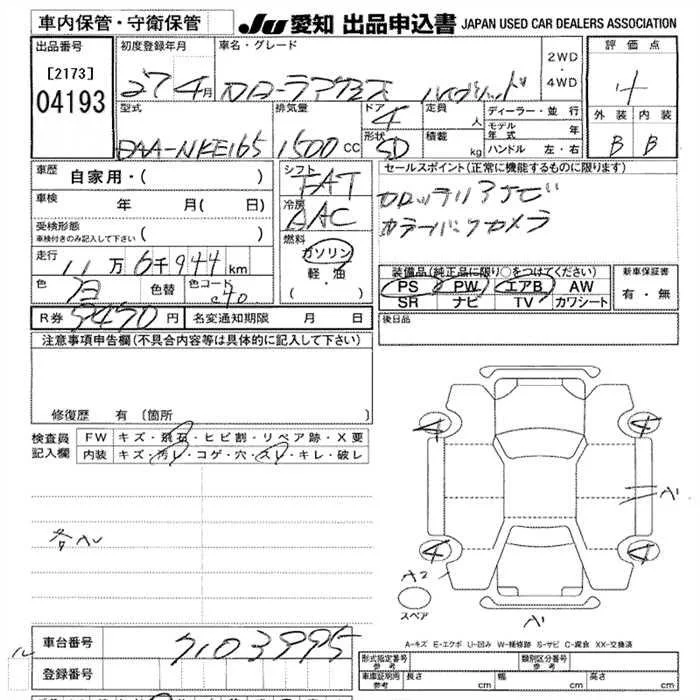 車内保管・守衛保管
JU 愛知 出品申込書 JAPAN USED CAR DEALERS ASSOCIATION
出品番号
[2173]
04193
初度登録年月
27 4月
車名・グレード
カローラアクシス ハイブリッド
2WD
・
4WD
評価点
4
外装 内装
B B
型式
DAA-NKE165
排気量
1500 CC
ドア
4
形状
SD
定員
人
積載
kg
ディーラー・並行
モデル年式 年
ハンドル 左・右
車歴 自家用・( )
車検 年 月(日)
受検形態
車検付きのみ記入して下さい ( )
走行
11万6千944km
色
白
色替
色コード
040
シフト
FAT
冷房
AAC
燃料
ガソリン
軽・油
( ・ )
セールスポイント(正常に機能するものに限ります)
バックカメラ
装備品(純正品に限り○をつけてください)
PS PW エアB AW
SR ナビ TV カワシート
新車保証書
有・無
R券 5470円 名変通知期限 月 日
後日品
注意事項申告欄(不具合内容等は具体的に記入して下さい)
修復歴 有〔箇所
検査員記入欄
FW キズ・飛石・ヒビ割・リペア跡・X要
内装 キズ・汚レ・コゲ・穴・スレ・キレ・破レ
各AU
4 4
A1
4 4
A2
スペア
A1
A-キズ E-エクボ U-凹み W-補修跡 S-サビ C-腐食 XX-交換済
車台番号 7103995
登録番号
形式指定番号 参考
類別区分番号 参考
車庫証明用 参考
長さ cm 幅 cm 高さ cm